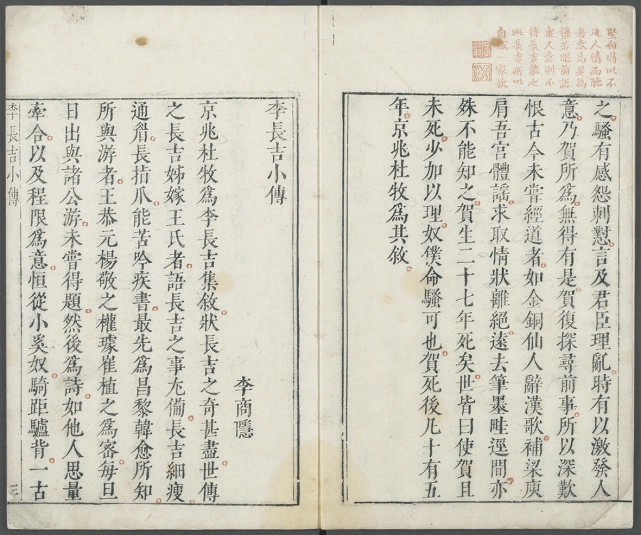 此長吉所以
自成一家
之騷有感怨刺懟言及君臣理亂時有以激發人
意乃賀所爲無得有是賀復探尋前事所以深歎
恨古今未嘗經道者如金銅仙人辭漢歌補梁庾
肩吾宫體謡求取情狀離絕遠去筆墨畦逕間亦
殊不能知之賀生二十七年死矣世皆曰使賀且
未死少加以理奴僕命騷可也賀死後凡十有五
年京兆杜牧爲其敘
李長吉小傳
李商隱
京兆杜牧爲李長吉集敘狀長吉之奇甚盡世傳
之長吉姊嫁王氏者語長吉之事尤備長吉細瘦
通眉長指爪能苦吟疾書最先爲昌黎韓愈所知
所與游者王叅元楊敬之權璩崔植之爲審每旦
日出與諸公游未嘗得題然後爲詩如他人思量
牽合以及程限爲意恒從小奚奴騎距驢背一古
李長吉小傳
三